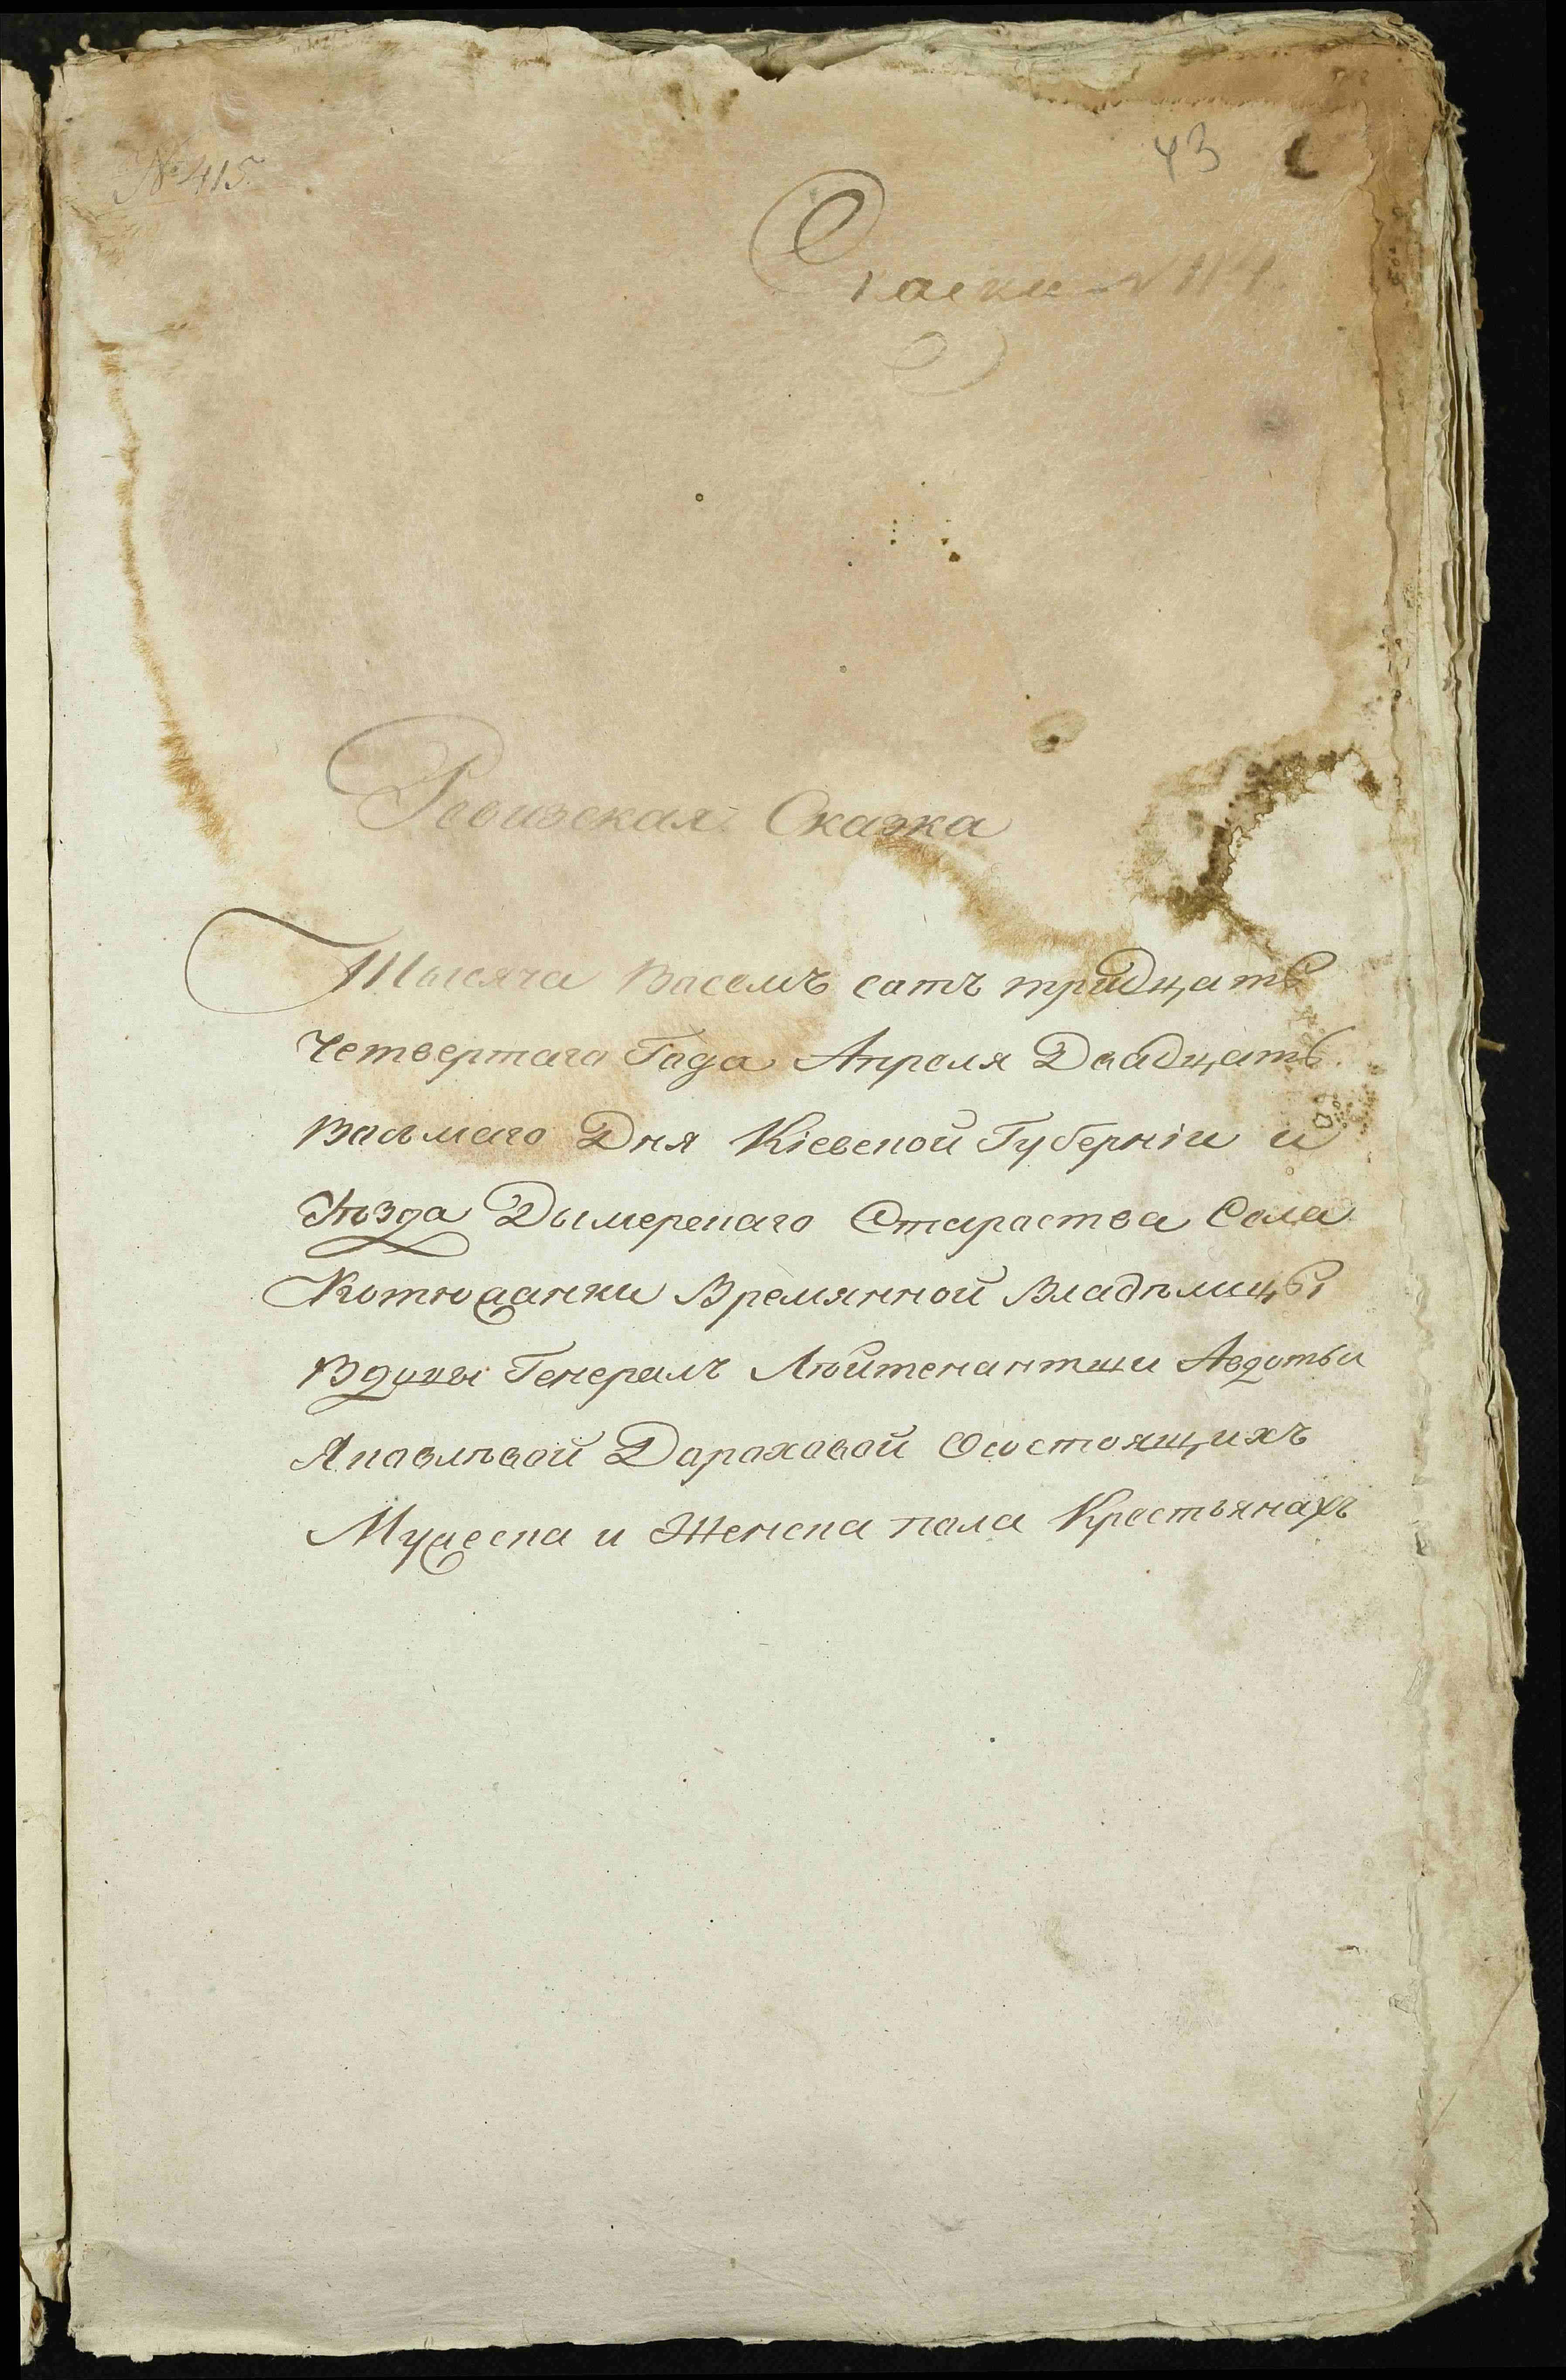 № 415
43
Ревизская Сказка
Тысяча Восемъ сотъ тридцать
Четвертаго Года Апреля Двадцать
Восьмаго Дня Кіевской Губерніи и
Уѣзда Дымерскаго Староства Села
Котюжанки Времянной Владѣлицы
Вдовы Генералъ Лѣйтенантши Авдотьи
Яковлѣвой Дороховой О состоящихъ
Мужеска и Женска пола Крестьянахъ